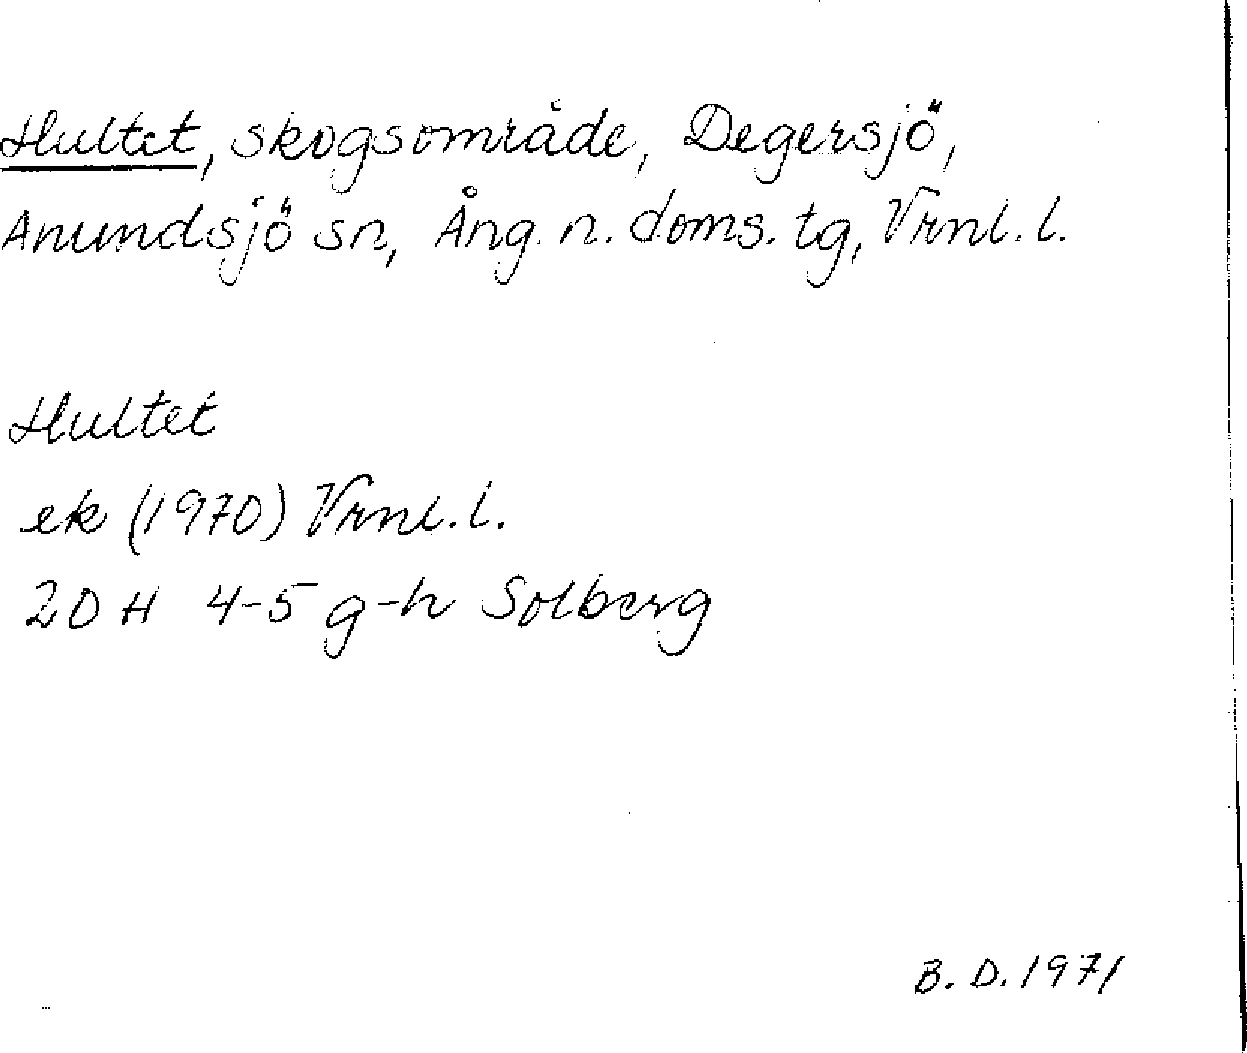 Hultet, skogsområde, Degersjö,
Anundsjö sn, Ång. n. doms. tg, Vrnl. l.
Hultet
ek (1970) Vrnl. l.
20 H 4-5 g-h Solberg
B. D. 1971